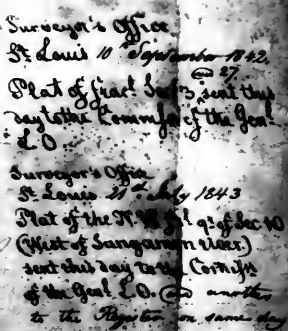 Surveyor's Office
St. Louis 10th September 1842.
and 27
Plat of frac! Sec 3, sent this
day to the Commr of the Genl
L.O.
Surveyor's Office
St. Louis 11th July 1843
Plat of the N. frl qr of Sec 10
(West of Sangamon river.)
sent this day to the Comr
of the Genl L.O. and another
to the Register on same day